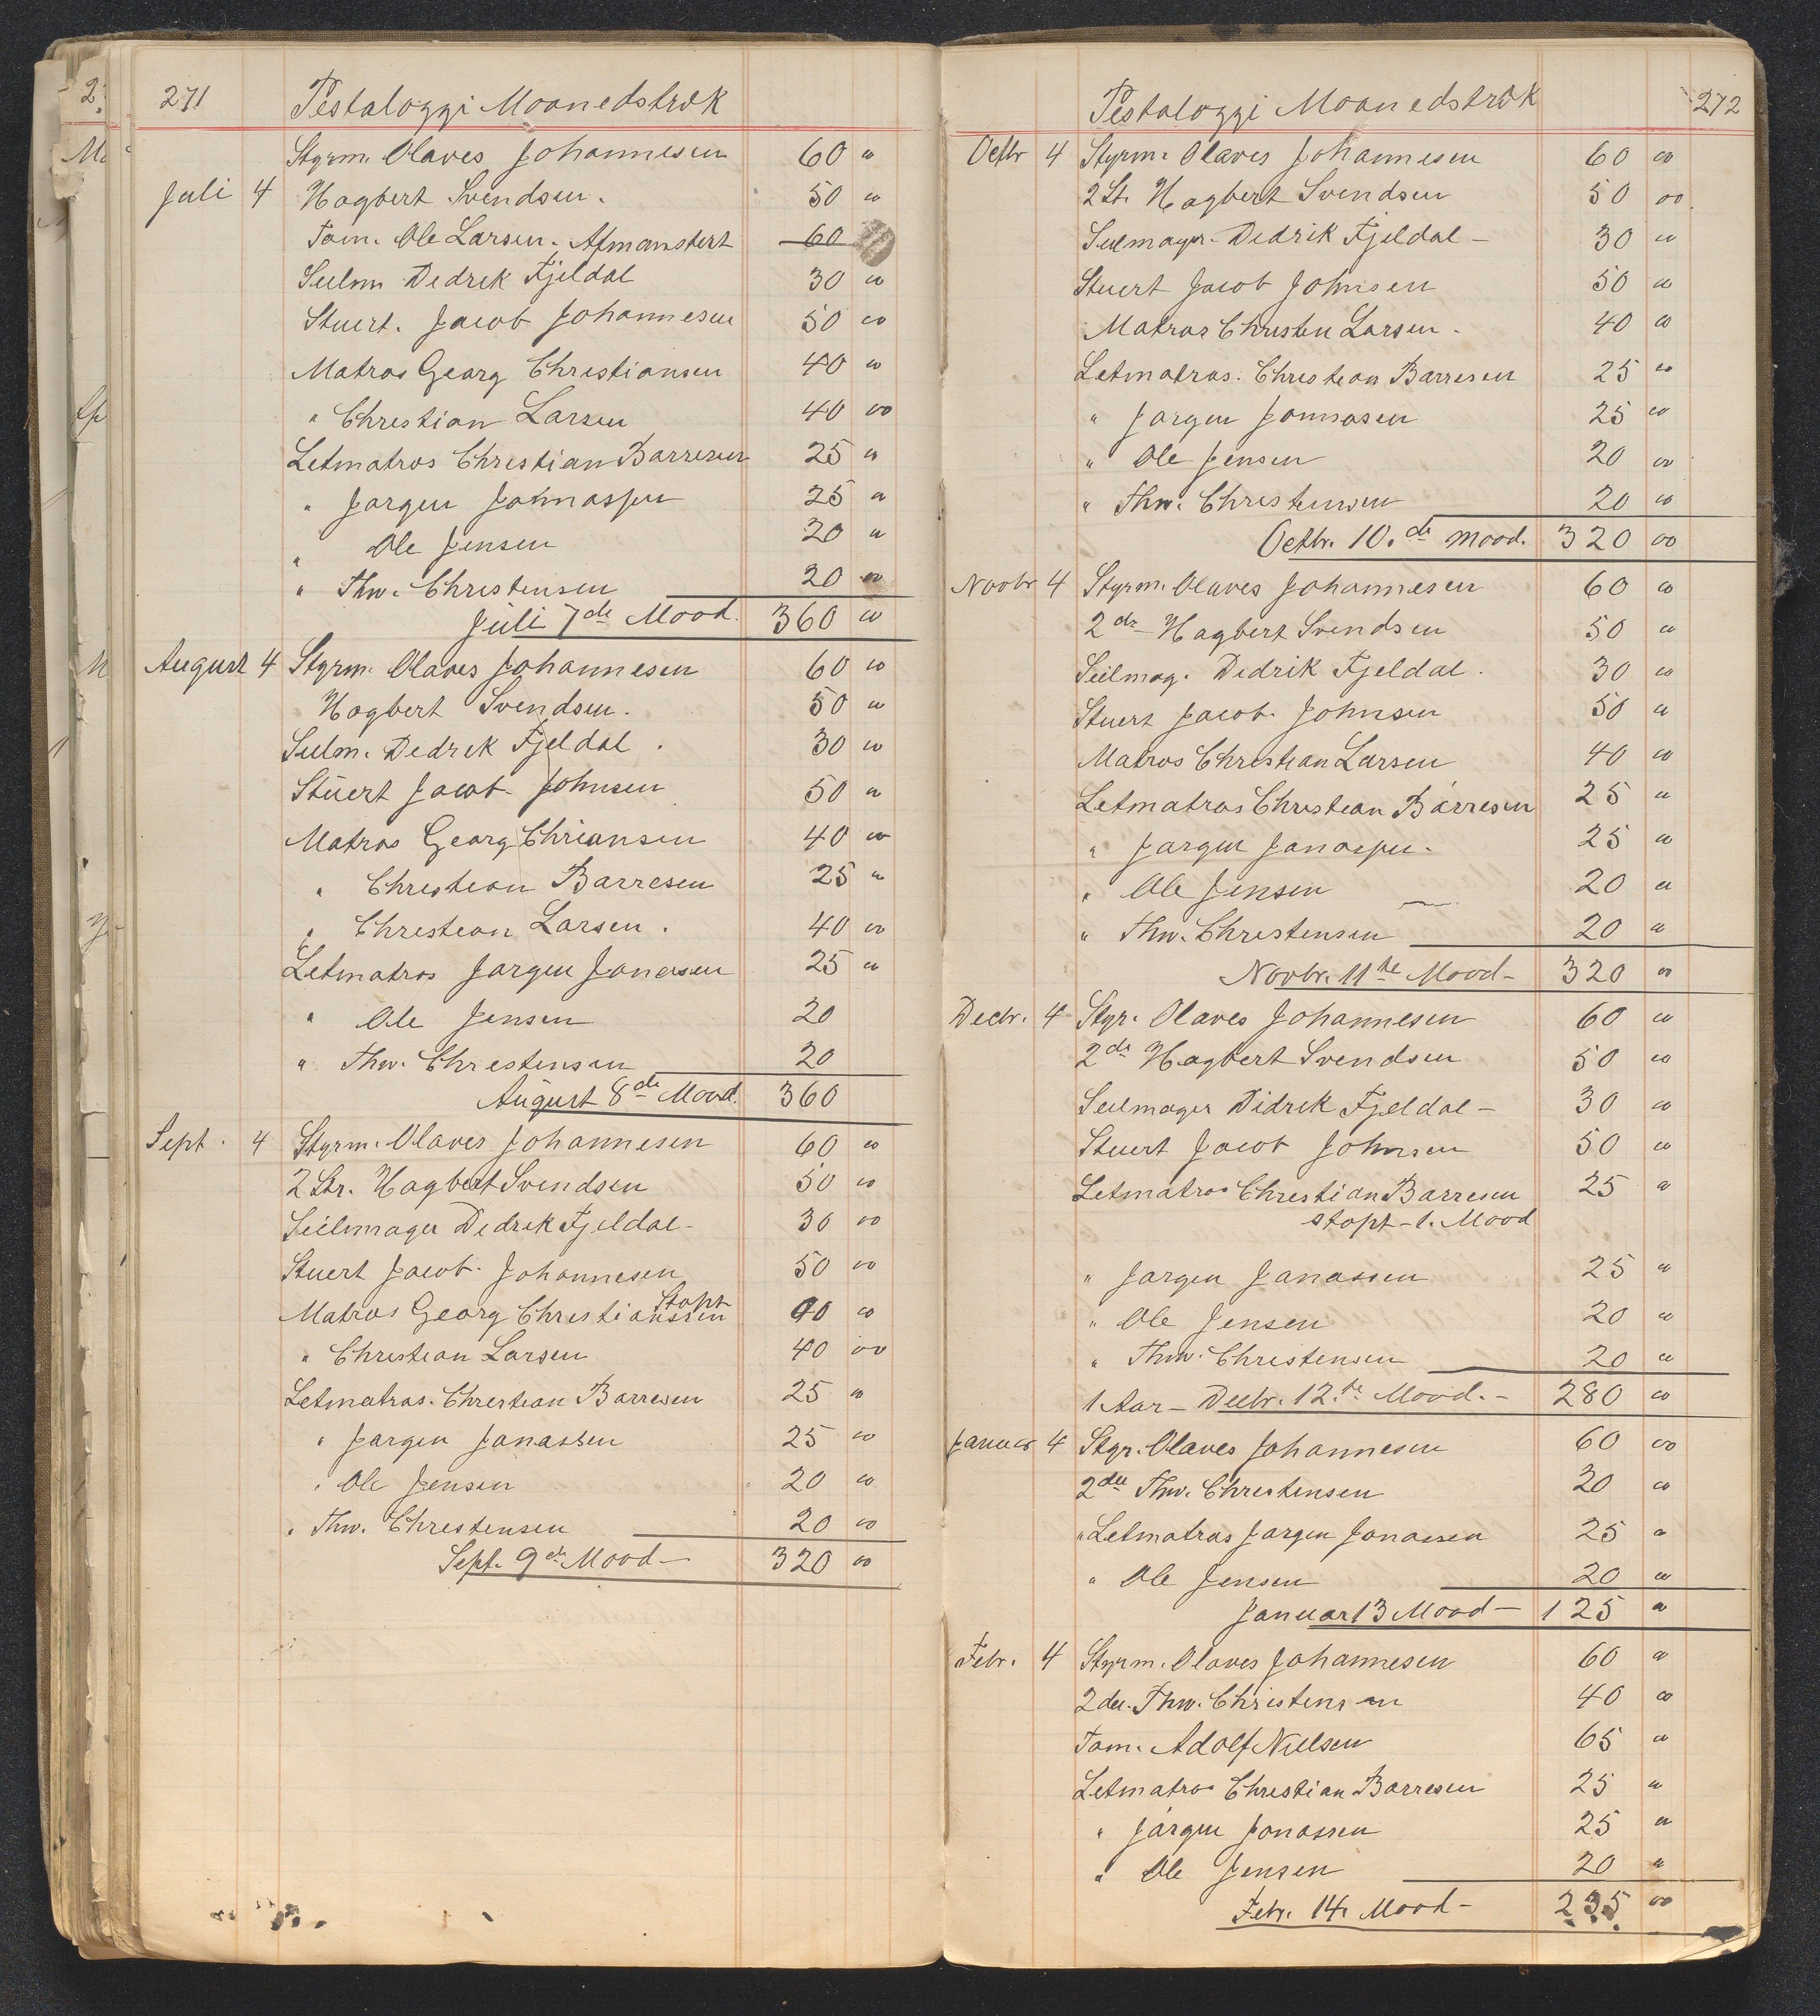 271 Pestaloggi Maanedstræk
Styrm. Olaves Johannesen 60 "
Juli 4 Hagbert Svendsen. 50 "
Tøm. Ole Larsen. Afmønstert 60
Seilm Dedrek Fjeldal 30 "
Stuert. Jacob Johannesen 50 "
Matros Georg Christiansen 40 "
" Christian Larsen 40 00
Letmatros Christian Barresen 25 "
" Jørgen Johnassen 25 "
" Ole Jensen 20 "
" Thw. Christensen 20 00
Juli 7de Maad. 360 00
August 4 Styrm. Olaves Johannesen 60 00
Hagbert Svendsen. 50 "
Seilm. Dedrek Fjeldal. 30 00
Stuert Jacob Johnsen 50 "
Matros Georg Chriansen 40 00
" Christian Barresen 25 "
" Christian Larsen. 40 00
Letmatros Jørgen Jonasen 25 "
" Ole Jensen 20
" Thw. Christensen 20
August 8de Maad. 360
Sept. 4 Styrm. Olaves Johannesen 60 00
2 Str. Hagbert Svendsen 50 00
Seilmager Dedrek Fjeldal- 30 00
Stuert Jacob. Johannesen 50 00
Stopt
Matros Georg Christianssen 40 00
" Christian Larsen 40 00
Letmatros. Christian Barresen 25 "
" Jørgen Janassen 25 00
" Ole Jensen 20 00
" Thw. Christensen 20 00
Sept. 9de Maad- 320 00
Pestaloggi Maanedstræk 272
Octbr 4 Styrm. Olaves Johannesen 60 00
2 St. Hagbert Svendsen 50 00
Seilmager. Dedrik Fjeldal- 30 00
Stuert Jacob Johnsen 50 00
Matros Christen Larsen. 40 00
Letmatros. Christian Barresen 25 00
" Jørgen Jonnasen 25 00
" Ole Jensen 20 00
" Thw. Christensen 20 00
Octbr. 10.de Maad. 320 00
Novbr 4 Styrm. Olaves Johannesen 60 00
2de Hagbert Svendsen 50 "
Seilmag. Dedrik Fjeldal. 30 00
Stuert Jacob. Johnsen 50 "
Matros Christian Larsen 40 00
Letmatros Christian Barresen 25 "
" Jørgen Janassen. 25 00
" Ole Jensen 20 "
" Thw. Christensen 20 "
Novbr. 11te Maad- 320 00
Decbr. 4 Styr. Olaves Johannesen 60 00
2de Hagbert Svendsen 50 00
Seilmager Didrek Fjeldal- 30 00
Stuert Jacob Johnsen 50 00
Letmatros Christian Barresen 25 "
stopt-1. Maad
" Jørgen Janassen 25 "
" Ole Jensen 20 "
" Thw. Christensen 20 "
1 Aar- Decbr. 12.te Maad.- 280 00
Januar 4 Styr. Olaves Johannesen 60 00
2den Thw. Christensen 20 00
" Letmatros Jørgen Jonassen 25 "
" Ole Jensen 20 00
Januar 13 Maad- 125 "
Febr. 4 Styrm. Olaves Johannesen 60 "
2de. Thw. Christensen 40 00
Tøm. Adolf Nielsen 65 "
Letmatros Christian Barresen 25 "
" Jørgen Jonassen 25 "
" Ole Jensen 20 "
Febr. 14. Maad- 235 00